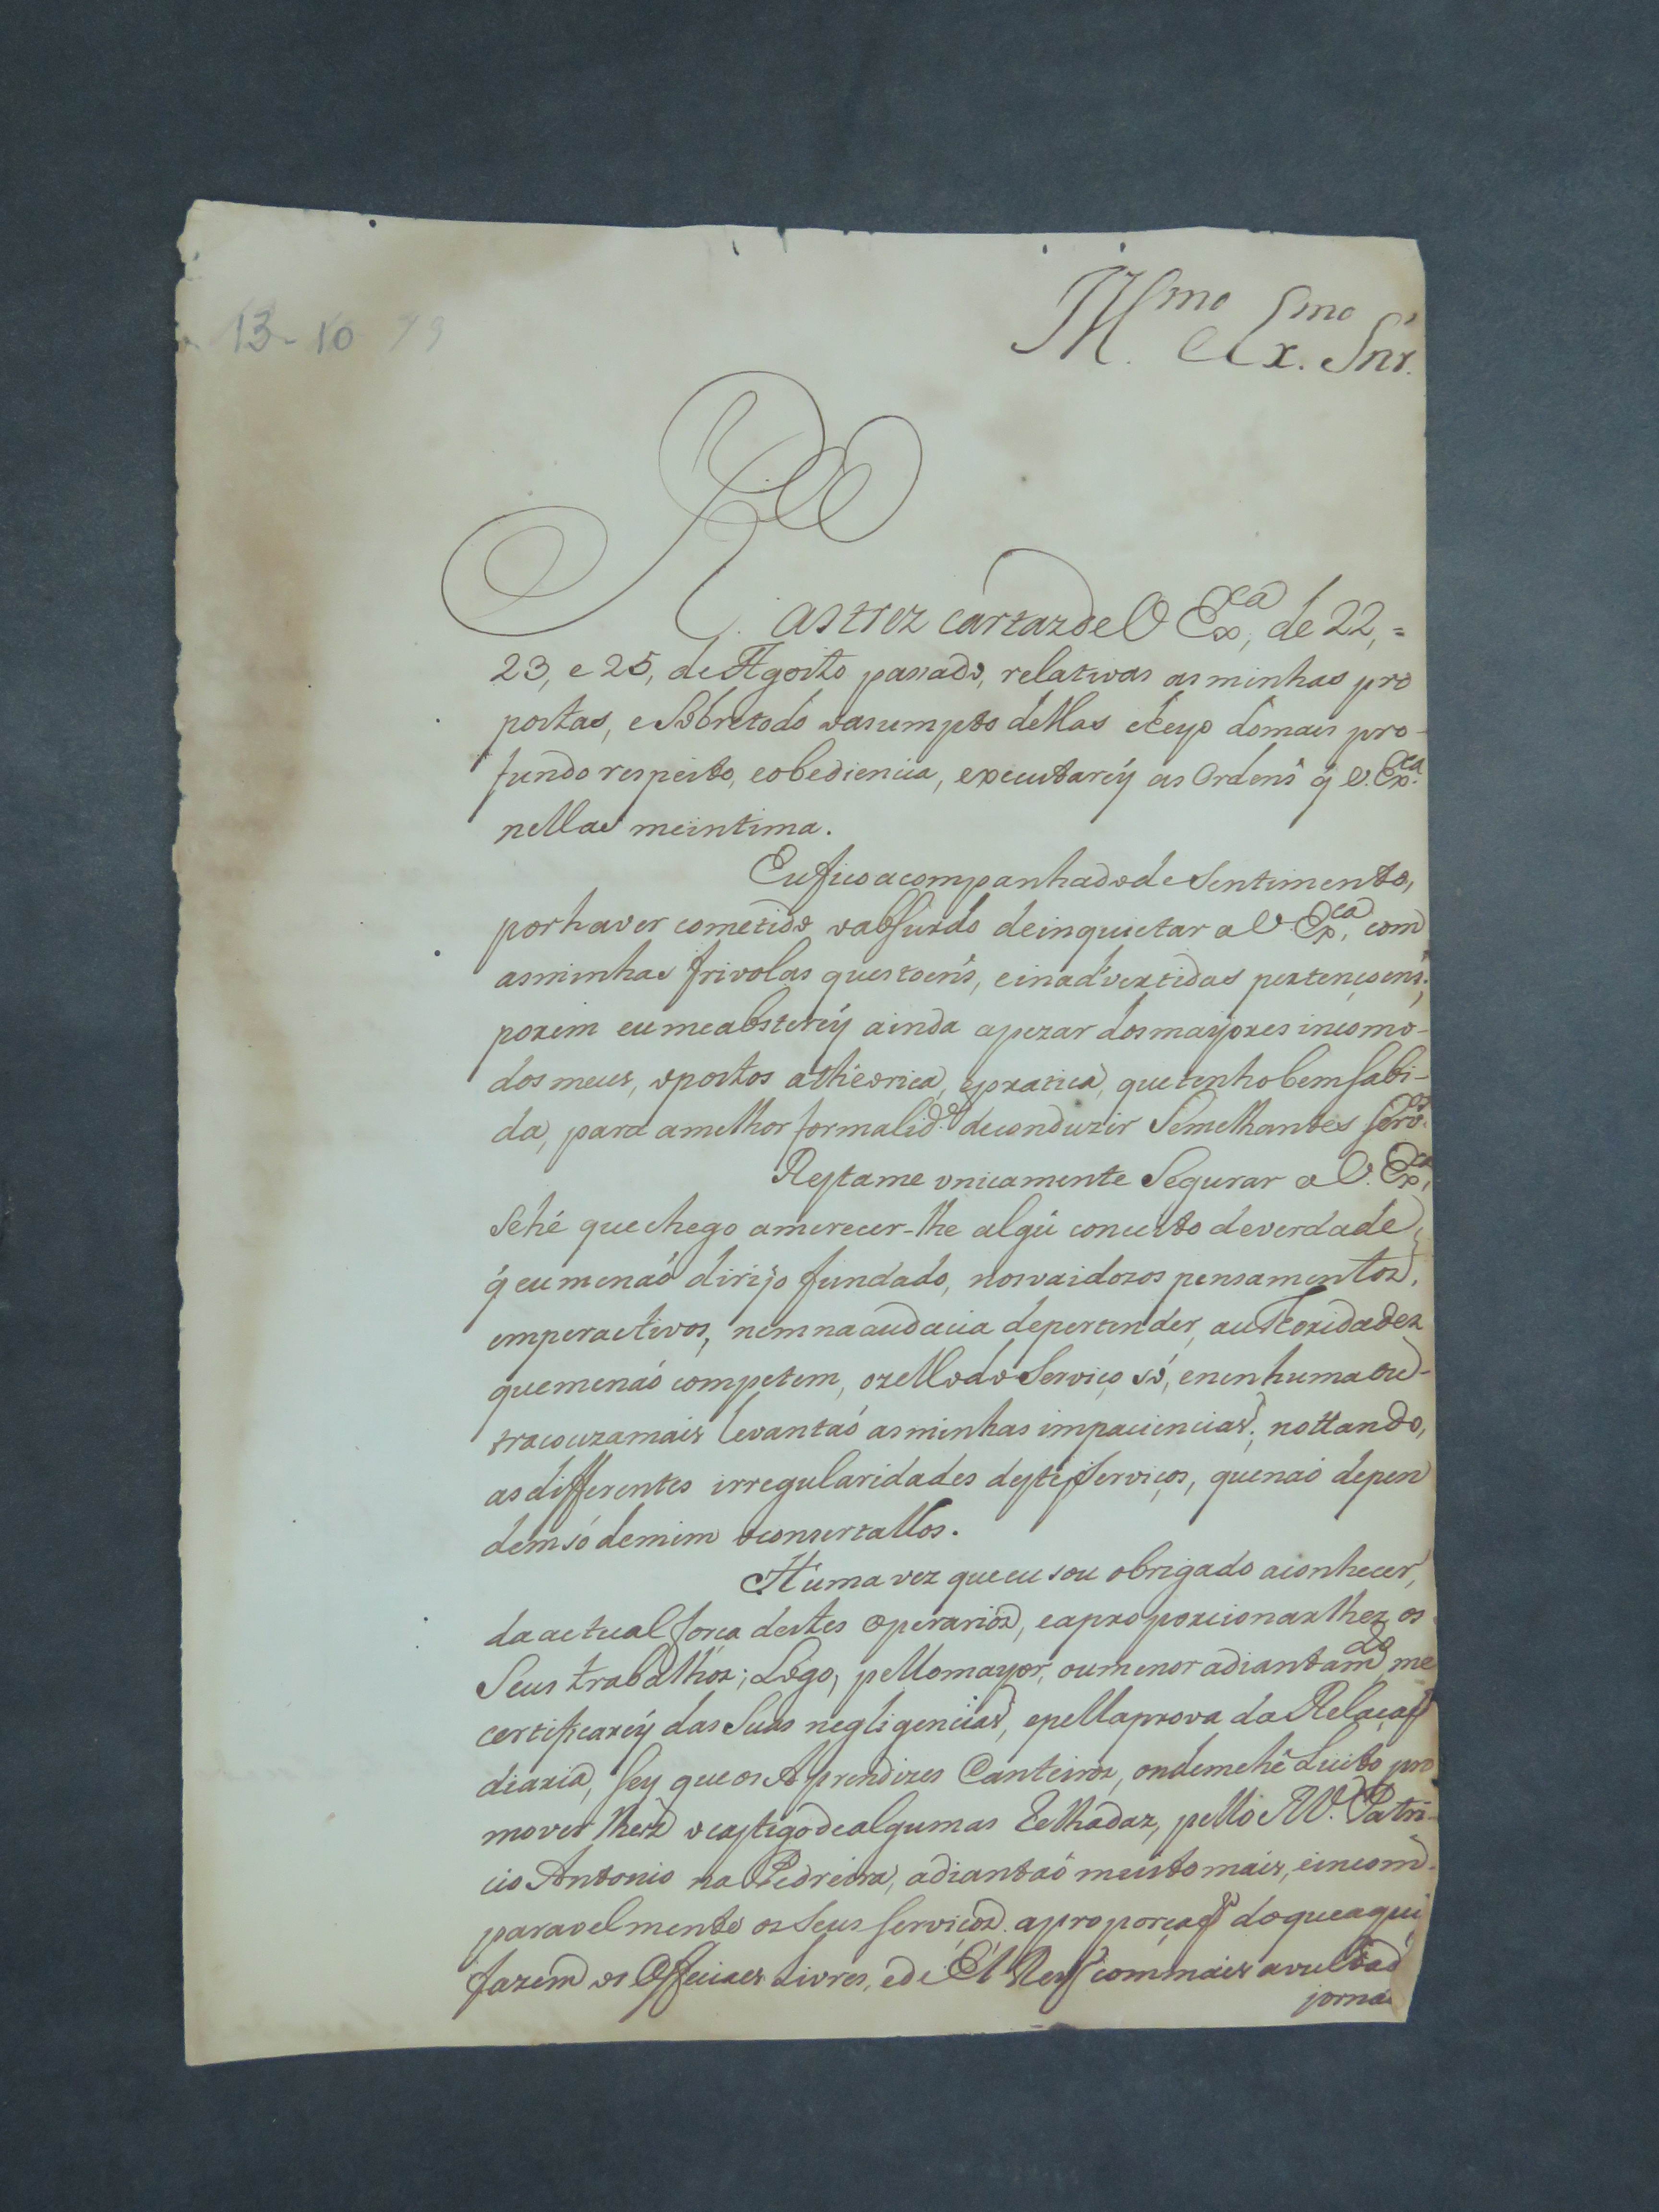 13-10 79
Ill.mo e Ex.mo Snr.
N as trez cartaz de V Ex.ca, de 22, =
23, e 25, de Agosto pasado, relativas as minhas pro
postas, e Sobretodo oasumpto dellas cheyo domais pro-
fundo respeito, eobediencia, executarey as Ordens q̃ V. Ex.ca
nellas meintima.
Eu fico acompanhadode Sentimento,
porhaver cometido oabsurdo deinquietar a V Ex.ca, com
asminhas frivolas questoens, einadvertidas pertençoens;
porem eumeabsterey ainda apezar dosmayores incomo-
dos meus, opostos athéorica, epratica, quetenhobemsabi-
da, para amelhor formalid.e deconduzir Semelhantes
Restame unicamente Segurar a V. Ex.ca,
Sehé quechego amerecer-lhe algũ conceito deverdade,
q̃ eumenaó dirijo fundado, nosvaidozos pensamentoz,
emperactivos, nemnaaudacia depertender authoridadez
quemenaó competem, ozellodoServiço só, enenhumaou-
tracouzamais levantaó asminhas impaciencias; nottando,
asdifferentes irregularidades desteservicos, quenaó depen
demsó demim oconsertallos.
Huma vez queeu sou obrigado aconhecer,
daactual força destes operarioz, eaproporcionarlhez os
Seus trabalhoz; Logo, pellomayor, oumenor adiantam.to me
certificarey das Suas negligencias, epellaprova da Relaçaõ
diaria, sey queos Aprendizes Canteiroz, ondemehé Licito pro
mover lhez ocastigodealgumas Telhadaz, pello R.V. Patri-
cio Antonio na Pedreira, adiantaó muitomais, eincom-
paravelmente osSeus serviçoz aproporçaõ doqueaqui
fazem os Officiaes Livres, ede El Rey commais avultad
jorna